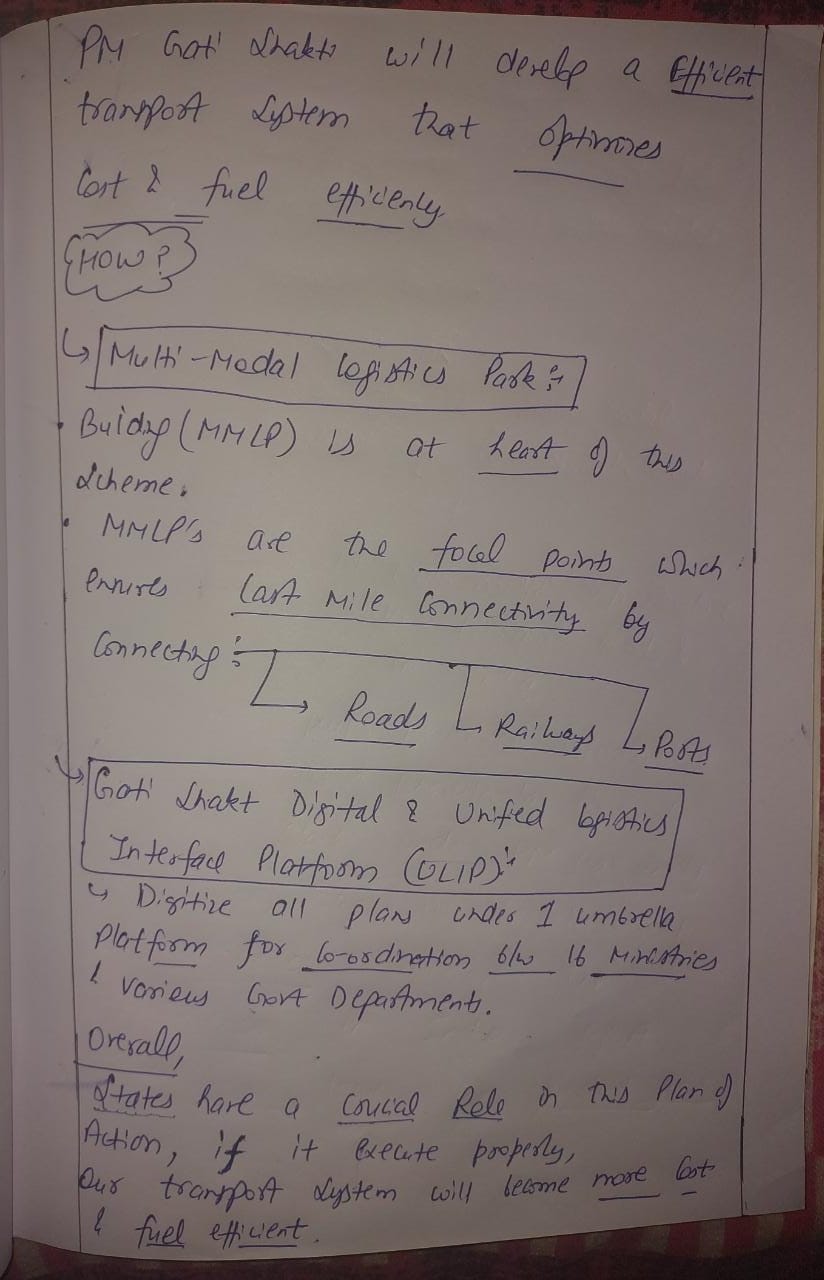 PM Gati Shakti will develop a Efficient
transport system that optimizes
Cost & fuel efficiently
HOW?
↳ Multi-Modal logistics Park :-
• Buildng (MMLP) is at heart of this
Scheme.
• MMLP's are the focal points which
ensures last Mile Connectivity by
Connecting :-
↳ Roads ↳ Railways ↳ Ports
↳ Gati Shakti Digital & Unified logistics
Interface Platform (ULIP) :-
↳ Digitize all plans under 1 umbrella
Platform for Co-ordination b/w 16 Ministries
& various Govt Departments.
Overall,
States have a Crucial Role in this Plan of
Action, if it Execute properly,
Our transport system will become more Cost
& fuel efficient.